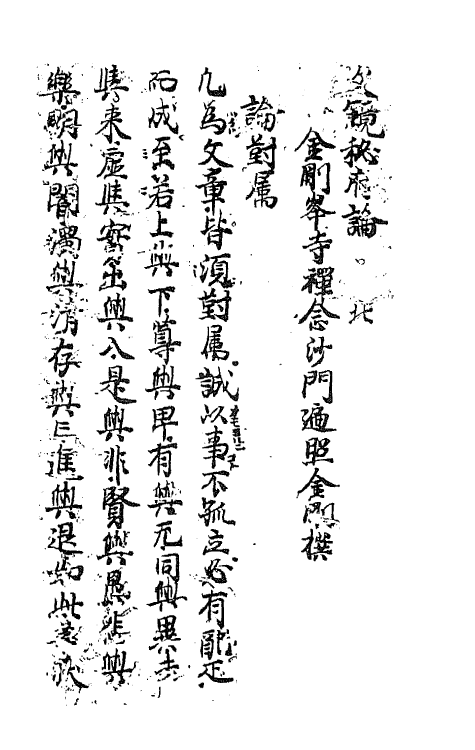 文鏡秘府論 北
金剛峯寺禪念沙門遍照金剛撰
論對属
凡為文章皆須對属誠以事不孤立必有配疋
而成至若上與下尊與卑有與无同與異去
與来虚與實出與入是與非賢與愚悲與
樂明與闇濁與清存與亡進與退如此等状